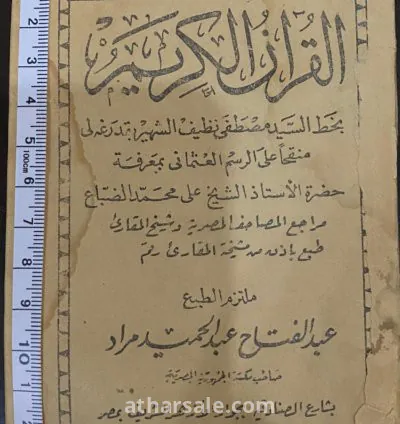 القرآن الكريم
بخط السيد مصطفى نظيف الشهير بقدرغه لى
منقحاً على الرسم العثمانى بمعرفة
حضرة الأستاذ الشيخ على محمد الضباع
مراجع المصاحف المصرية وشيخ المقارئ
طبع بإذن من مشيخة المقارئ رقم
ملتزم الطبع
عبد الفتاح عبد الحميد مراد
صاحب مكتبة الجمهورية المصرية
بشارع الصنادقية بجوار الأزهر الشريف بمصر
atharsale.com
2
3
4
5
(100cm)
6
7
8
9
10